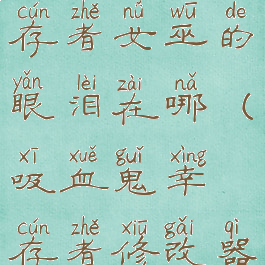 cún zhě nǚ wū de
存者女巫的
yǎn lèi zài nǎ
眼泪在哪（
xī xuě guǐ xìng
吸血鬼幸
cún zhě xiū gǎi qì
存者修改器